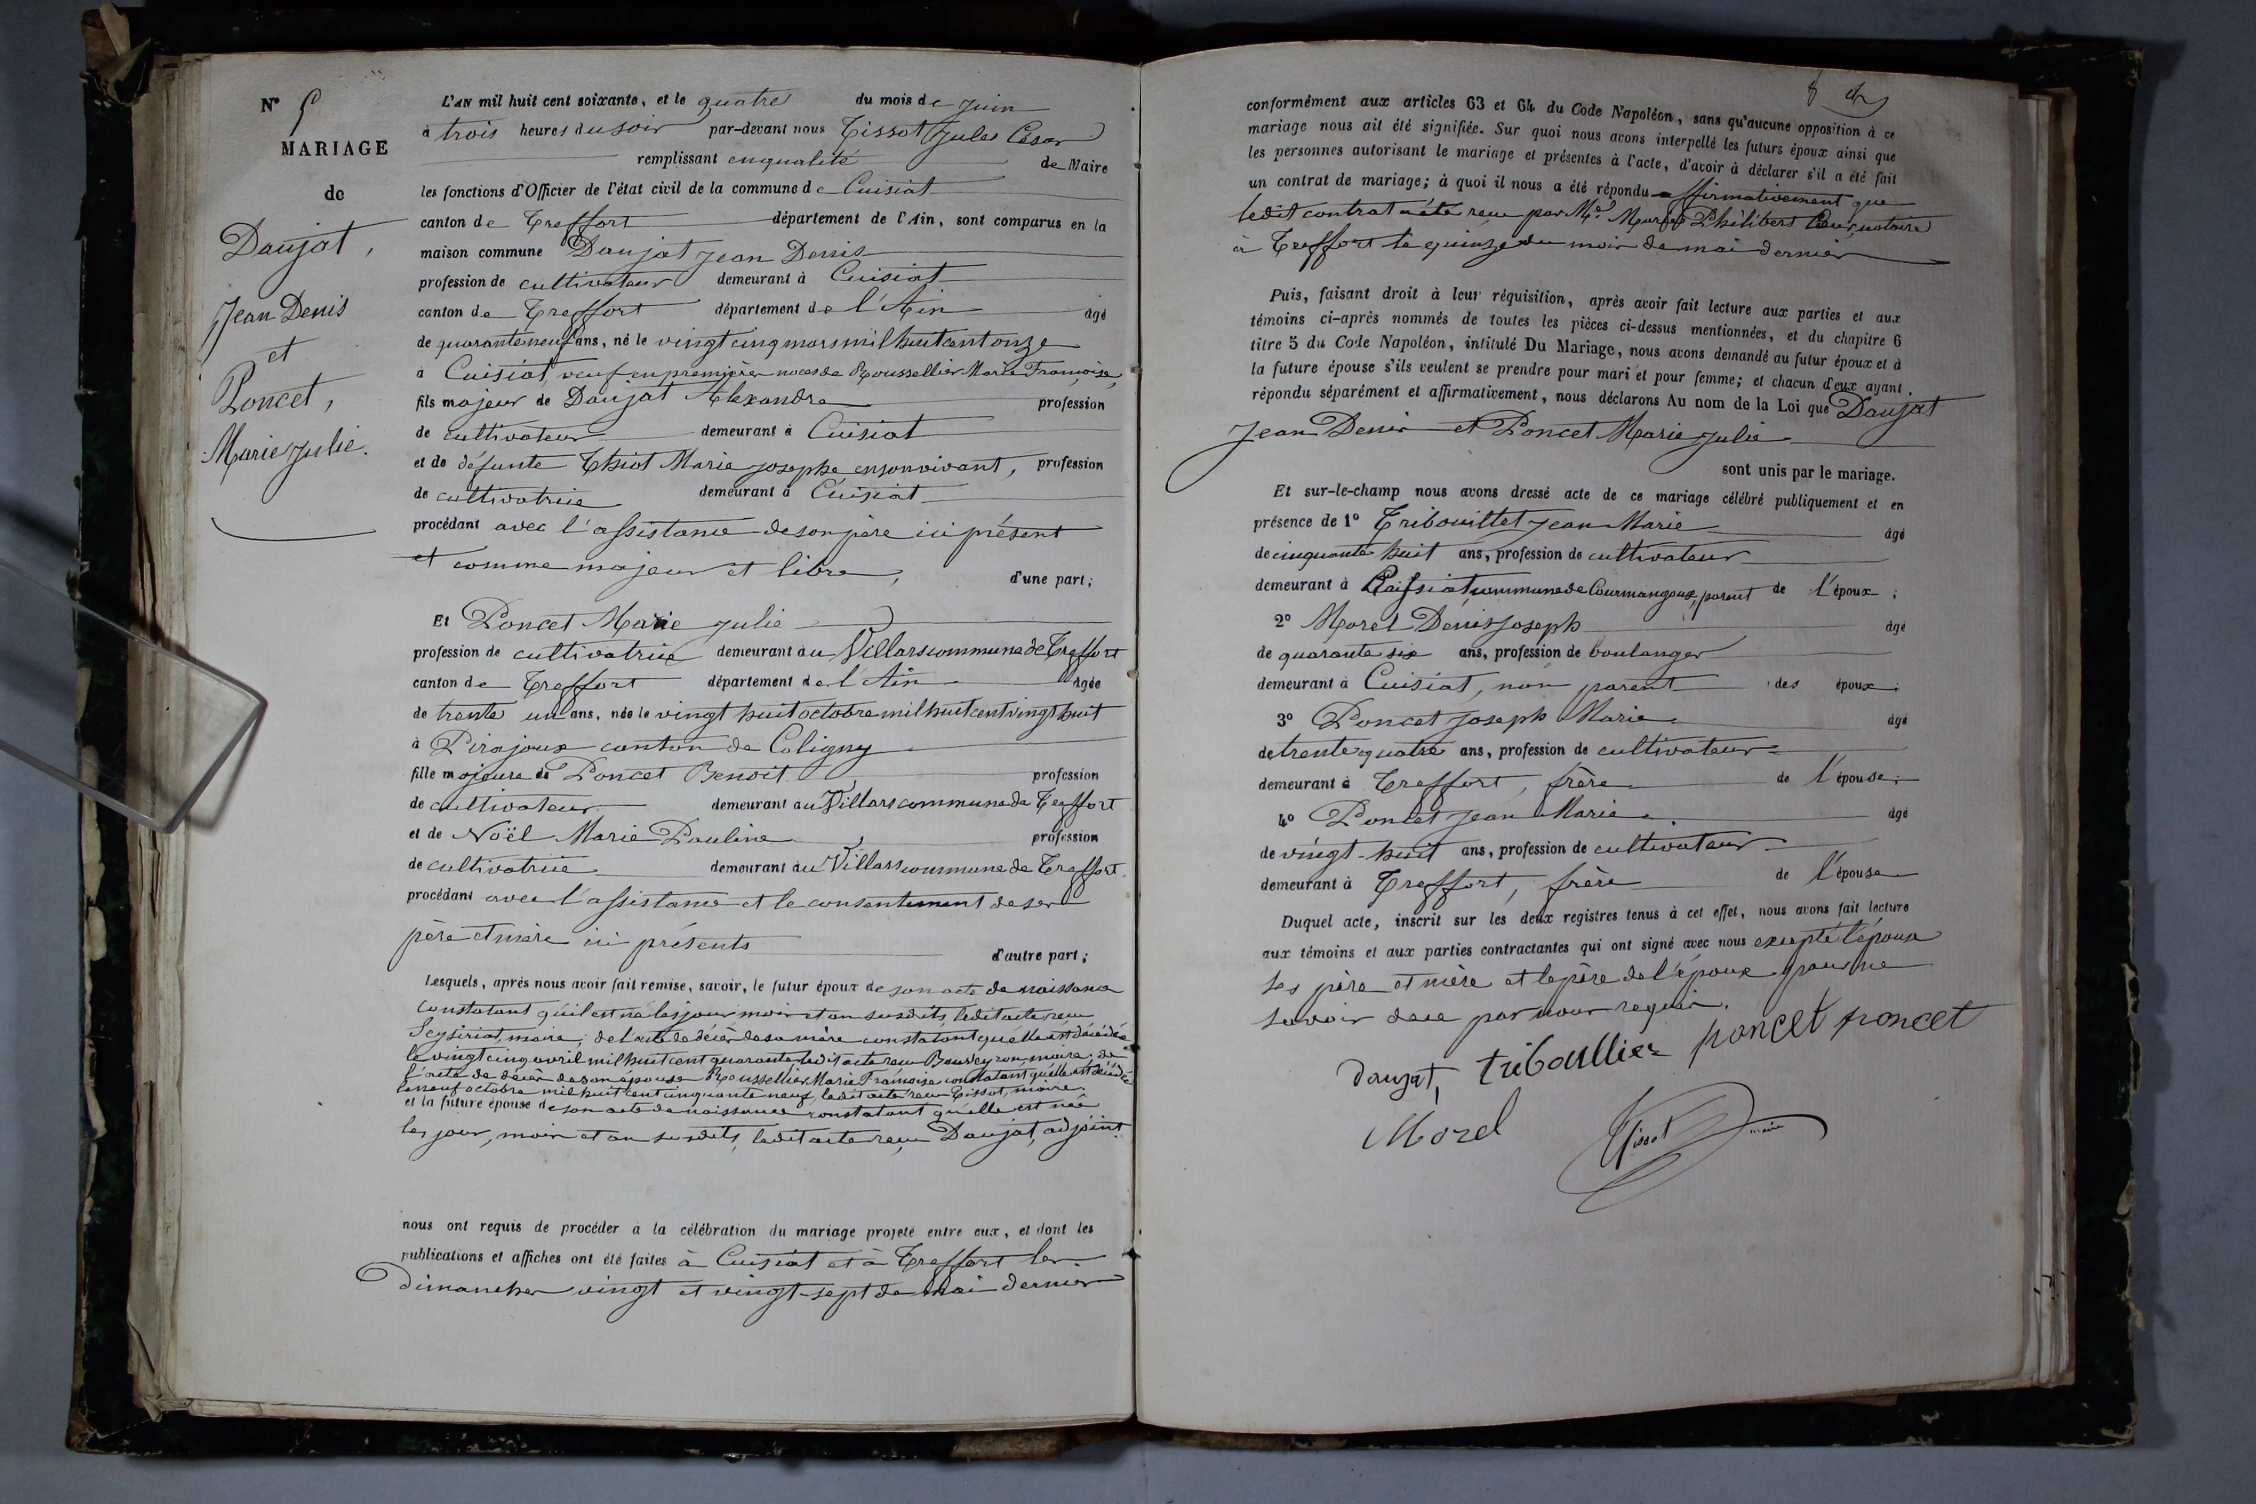 N° 5
MARIAGE
de
Daujat,
Jean Denis
et
Poncet,
Marie Julie.
L'AN mil huit cent soixante, et le quatre du mois de Juin
à trois heures du soir par-devant nous Tissot Jules César
remplissant en qualité de Maire
les fonctions d'Officier de l'état civil de la commune de Cuisiat
canton de Treffort département de l'Ain, sont comparus en la
maison commune Daujat Jean Denis
profession de cultivateur demeurant à Cuisiat
canton de Treffort département de l'Ain âgé
de quarante neuf ans, né le vingt cinq mars mil huit cent onze
à Cuisiat, veuf en premières noces de Roussellier Marie Françoise,
fils majeur de Daujat Alexandre profession
de cultivateur demeurant à Cuisiat
et de défunte Thiot Marie Josephe en son vivant, profession
de cultivatrice demeurant à Cuisiat
procédant avec l'assistance de son père ici présent
et comme majeur et libre, d'une part;
Et Poncet Marie Julie
profession de cultivatrice demeurant au Villars commune de Treffort
canton de Treffort département de l'Ain âgée
de trente un ans, née le vingt huit octobre mil huit cent vingt huit
à Pirajoux canton de Coligny
fille majeure de Poncet Benoit profession
de cultivateur demeurant au Villars commune de Treffort
et de Noël Marie Pauline profession
de cultivatrice demeurant au Villars commune de Treffort
procédant avec l'assistance et le consentement de ses
père et mère ici présents d'autre part;
Lesquels, après nous avoir fait remise, savoir, le futur époux de son acte de naissance
constatant qu'il est né les jour mois et an susdits, ledit acte reçu
Seyssiriat, maire; de l'acte de décès de sa mère constatant qu'elle est décédée
le vingt cinq avril mil huit cent quarante ledit acte reçu Bouveyron, maire; de
l'acte de décès de son épouse Roussellier Marie Françoise constatant qu'elle est décédée
le neuf octobre mil huit cent cinquante neuf, ledit acte reçu Tissot, maire.
et la future épouse de son acte de naissance constatant qu'elle est née
les jour, mois et an susdits, ledit acte reçu Daujat, adjoint.
nous ont requis de procéder à la célébration du mariage projeté entre eux, et dont les
publications et affiches ont été faites à Cuisiat et à Treffort les
dimanches vingt et vingt-sept de mai dernier
8
conformément aux articles 63 et 64 du Code Napoléon, sans qu'aucune opposition à ce
mariage nous ait été signifiée. Sur quoi nous avons interpellé les futurs époux ainsi que
les personnes autorisant le mariage et présentes à l'acte, d'avoir à déclarer s'il a été fait
un contrat de mariage; à quoi il nous a été répondu affirmativement que
ledit contrat a été reçu par Me Philibert notaire
à Treffort le quinze du mois de mai dernier
Puis, faisant droit à leur réquisition, après avoir fait lecture aux parties et aux
témoins ci-après nommés de toutes les pièces ci-dessus mentionnées, et du chapitre 6
titre 5 du Code Napoléon, intitulé Du Mariage, nous avons demandé au futur époux et à
la future épouse s'ils veulent se prendre pour mari et pour femme; et chacun d'eux ayant
répondu séparément et affirmativement, nous déclarons Au nom de la Loi que Daujat
Jean Denis et Poncet Marie Julie
sont unis par le mariage.
Et sur-le-champ nous avons dressé acte de ce mariage célébré publiquement et en
présence de 1° Tribouillet Jean Marie âgé
de cinquante huit ans, profession de cultivateur
demeurant à Roissiat commune de Courmangoux, parent de l'époux;
2° Morel Denis Joseph âgé
de quarante six ans, profession de boulanger
demeurant à Cuisiat, non parent des époux;
3° Poncet Joseph Marie âgé
de trente quatre ans, profession de cultivateur
demeurant à Treffort, frère de l'épouse;
4° Poncet Jean Marie âgé
de vingt-huit ans, profession de cultivateur
demeurant à Treffort, frère de l'épouse
Duquel acte, inscrit sur les deux registres tenus à cet effet, nous avons fait lecture
aux témoins et aux parties contractantes qui ont signé avec nous excepté l'épouse
ses père et mère et le père de l'époux pour ne
savoir de ce par nous requis.
daujat, triboullier poncet poncet
Morel
Tissot maire